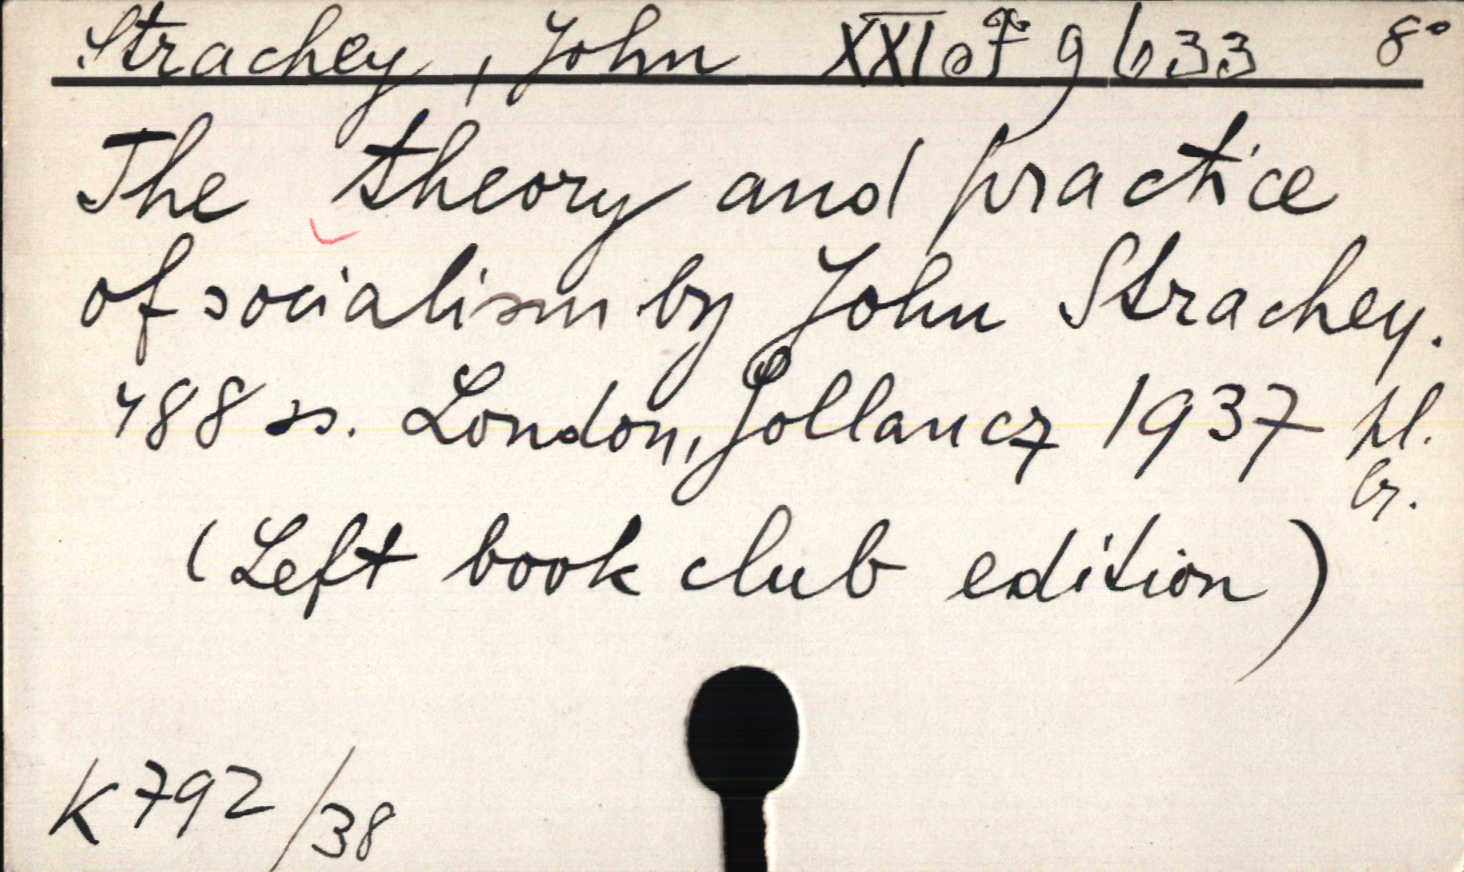 Strachey, John XXI 9633 8°
The theory and practice
of socialism by John Strachey.
488 ss. London, Gollancz 1937 pl.
br.
(Left book club edition)
K 792/38